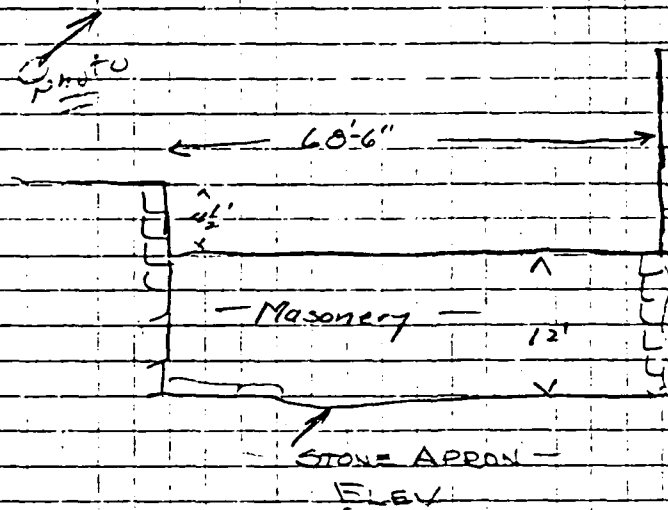 Photo
68'-6"
4½'
— Masonery —
12'
STONE APRON —
ELEV